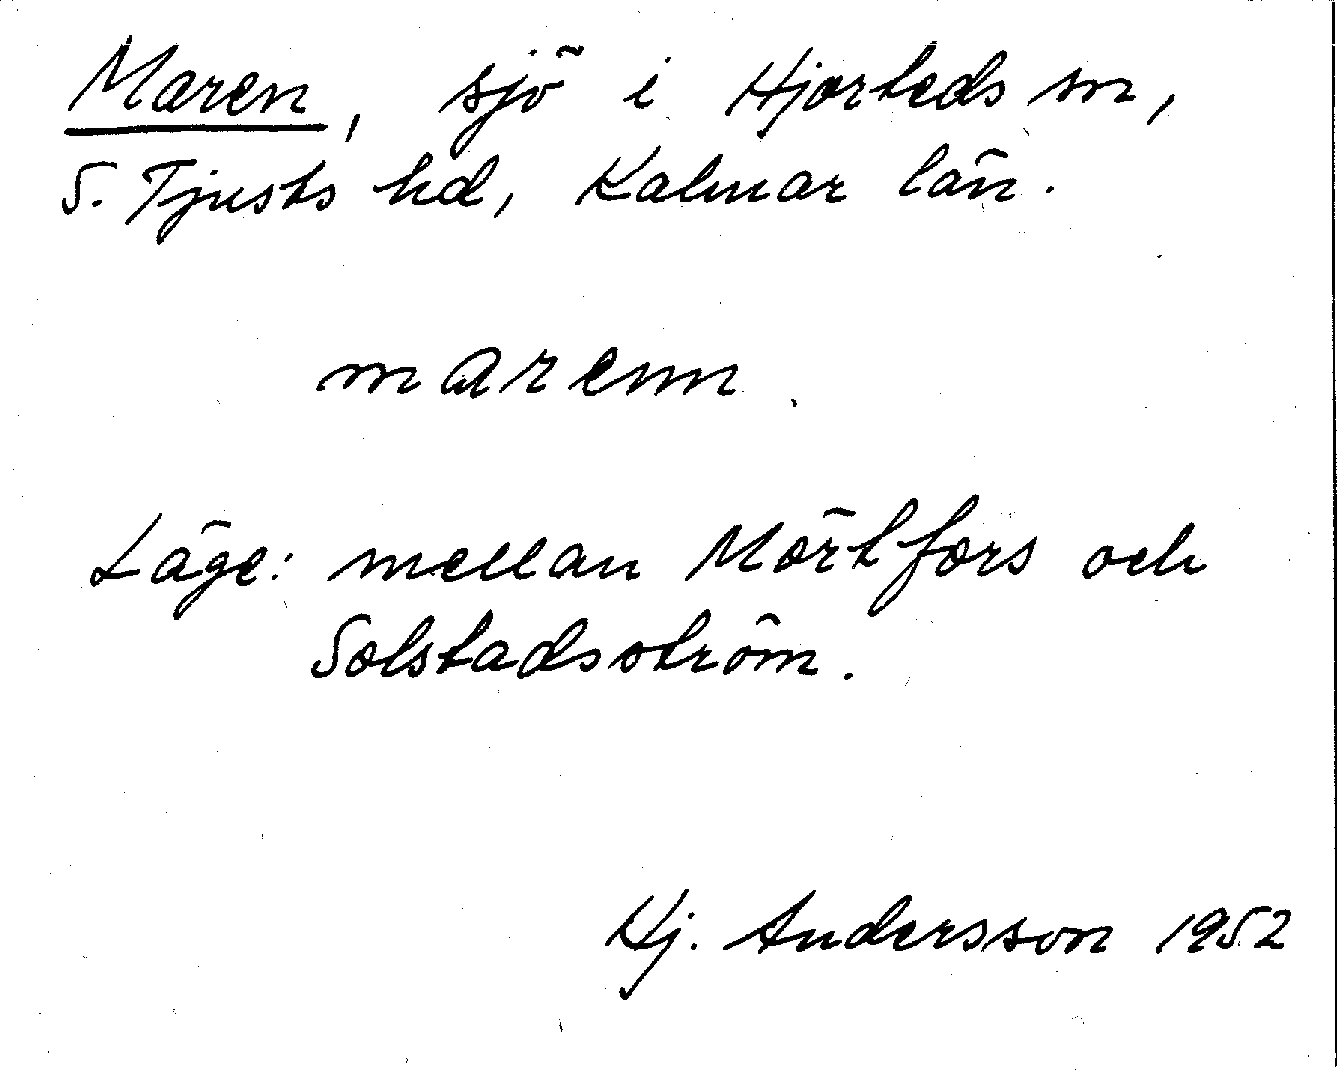 Maren, sjö i Hjorteds sn,
S. Tjusts hd, Kalmar län.
marenn
Läge: mellan Mörtfors och
Solstadsström.
Hj. Andersson 1952